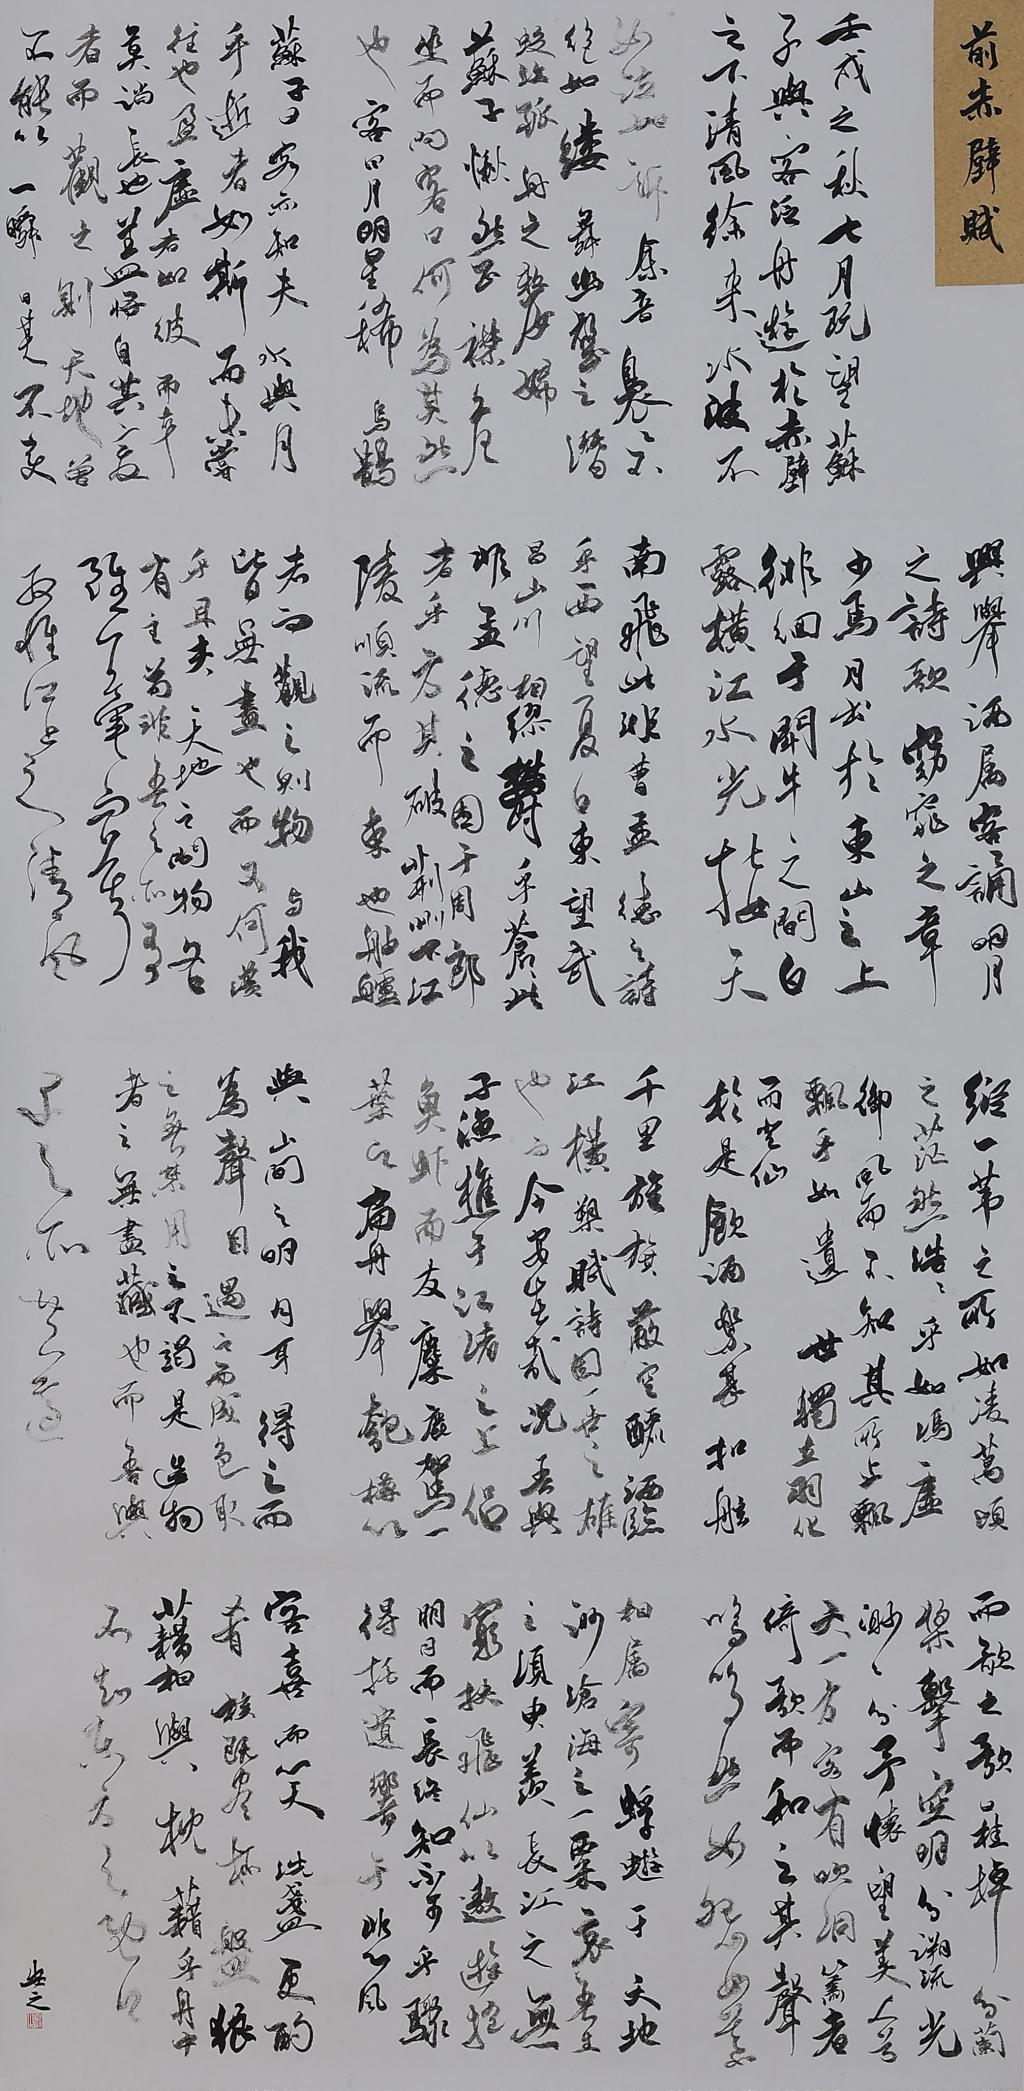 前赤壁賦
壬戌之秋七月既望蘇
子與客泛舟遊於赤壁
之下清風徐來水波不
興舉酒属客誦明月
之詩歌窈窕之章
少焉月出於東山之上
徘徊于鬥牛之間白
露橫江水光接天
縱一葦之所如凌萬頃
之茫然浩々乎如馮虛
御風而不知其所止飄
飄乎如遺世獨立羽化
而登仙
於是飲酒樂甚扣舷
而歌之歌曰桂棹兮蘭
槳擊空明兮溯流光
渺々兮予懷望美人兮
天一方客有吹洞簫者
倚歌而和之其聲
嗚嗚然如怨如慕
如泣如訴餘音裊々不
絕如縷舞幽壑之潛
蛟泣孤舟之嫠婦
蘇子愀然正襟危
坐而問客曰何為其然
也客曰月明星稀烏鵲
南飛此非曹孟德之詩
乎西望夏口東望武
昌山川相繆鬱乎蒼々此
非孟德之困于周郎
者乎方其破荊州下江
陵順流而東也舳艫
千里旌旗蔽空釃酒臨
江橫槊賦詩固一世之雄
也而今安在哉況吾與
子漁樵于江渚之上侶
魚蝦而友麋鹿駕一
葉之扁舟舉匏樽以
相属寄蜉蝣于天地
渺滄海之一粟哀吾生
之須臾羨長江之無
窮挾飛仙以遨遊抱
明月而長終知不可乎驟
得托遺響于悲風
蘇子曰客亦知夫水與月
乎逝者如斯而未嘗
往也盈虛者如彼而卒
莫消長也蓋將自其變
者而觀之則天地曾
不能以一瞬自其不變
者而觀之則物与我
皆無盡也而又何羨
乎且夫天地之間物各
有主苟非吾之所有
雖一毫而莫取
惟江上之清風
與山間之明月耳得之而
為聲目遇之而成色取
之無禁用之不竭是造物
者之無盡藏也而吾與
子之所共適
客喜而笑洗盞更酌
肴核既盡杯盤狼
藉相與枕藉乎舟中
不知東方之既白